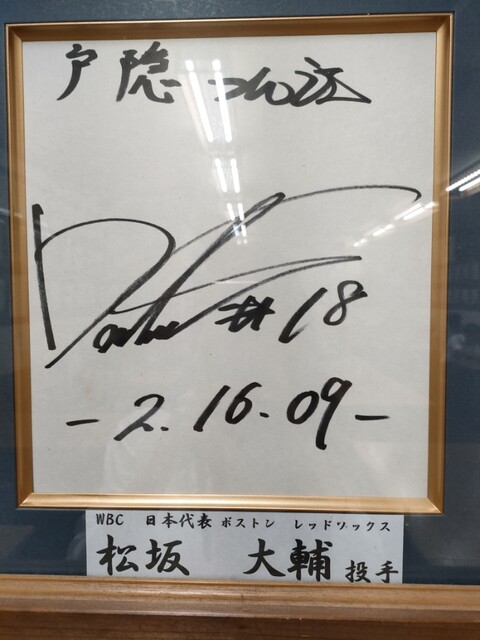 戸隠
Daisuke #18
-2.16.09-
WBC 日本代表 ボストン レッドソックス
松坂 大輔 投手